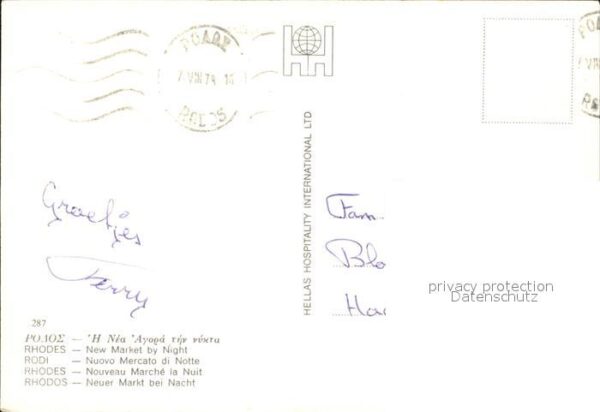 ΡΟΔΟΣ
7 VIII 74 10
HH
HELLAS HOSPITALITY INTERNATIONAL LTD
Groetjes
Ferry
Fam.
Blo
Ha
privacy protection
Datenschutz
287
ΡΟΔΟΣ — Ἡ Νέα Ἀγορά τήν νύκτα
RHODES — New Market by Night
RODI — Nuovo Mercato di Notte
RHODES — Nouveau Marché la Nuit
RHODOS — Neuer Markt bei Nacht